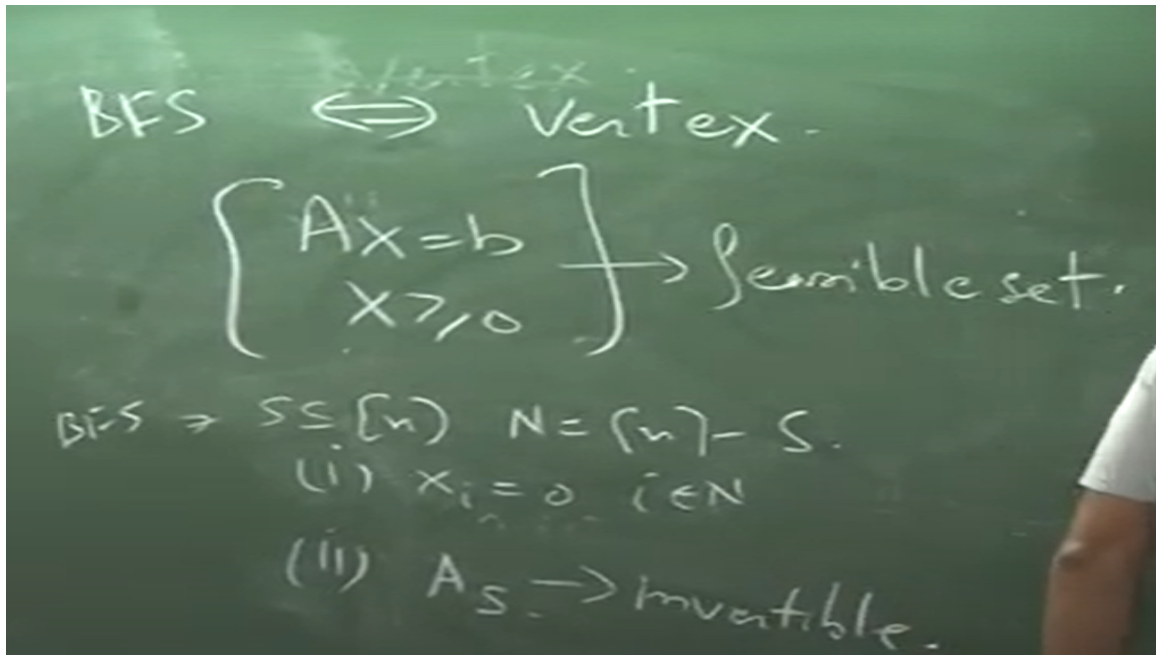 vertex.
BFS ⟺ vertex.
[ Ax = b
x ≥ 0 ] → feasible set.
BFS → S ⊆ [n] N = [n] - S.
(i) xᵢ = 0 i ∈ N
(ii) A_S → invertible.